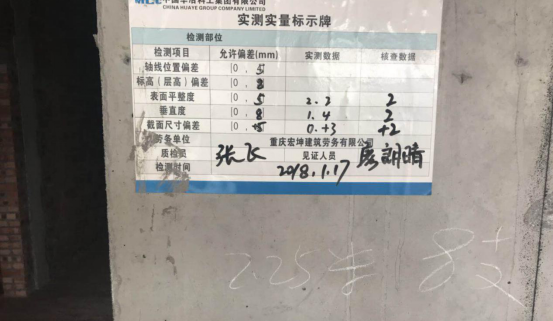 CHINA HUAYE GROUP COMPANY LIMITED
实测实量标示牌
检测部位
检测项目 允许偏差(mm) 实测数据 核查数据
轴线位置偏差 [0, 5]
标高(层高)偏差 [0, 8]
表面平整度 [0, 5] 2.2 2
垂直度 [0, 8] 1.4 2
截面尺寸偏差 [0, +5] 0.+3 +2
劳务单位 重庆宏坤建筑劳务有限公司
质检员 张飞 见证人员 廖朗晴
检测时间 2018.1.17